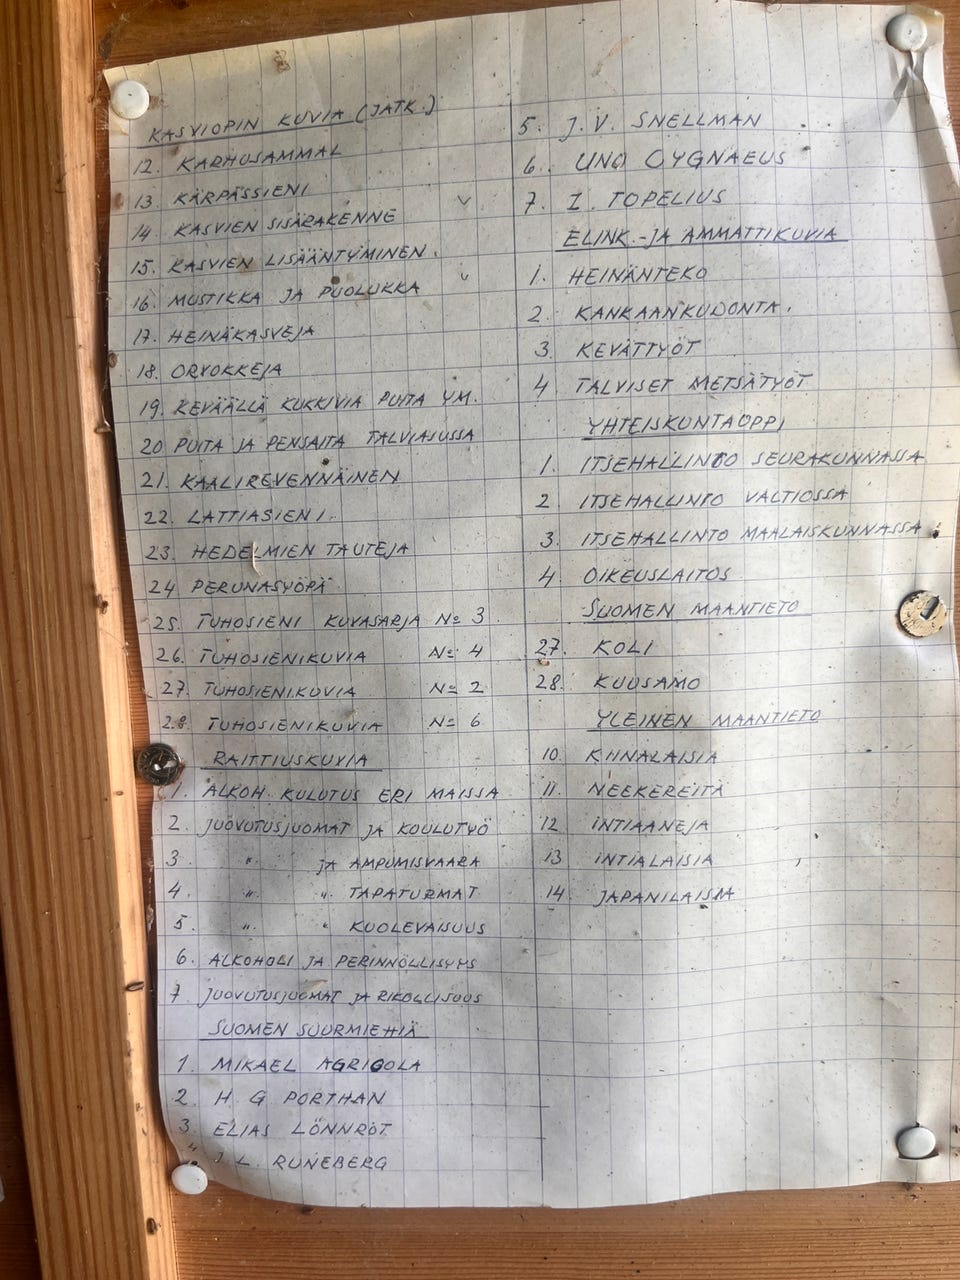 KASVIOPIN KUVIA (JATK.)
12. KARHUSAMMAL
13. KÄRPÄSSIENI
14. KASVIEN SISÄRAKENNE
15. KASVIEN LISÄÄNTYMINEN.
16. MUSTIKKA JA PUOLUKKA
17. HEINÄKASVEJA
18. ORVOKKEJA
19. KEVÄÄLLÄ KUKKIVIA PUITA YM.
20 PUITA JA PENSAITA TALVIASUSSA
21. KAALIREVENNÄINEN
22. LATTIASIENI.
23. HEDELMIEN TAUTEJA
24 PERUNASYÖPÄ
25. TUHOSIENI KUVASARJA No 3
26. TUHOSIENIKUVIA No 4
27. TUHOSIENIKUVIA No 2
28. TUHOSIENIKUVIA No 6
RAITTIUSKUVIA
1. ALKOH. KULUTUS ERI MAISSA
2. JUOVUTUSJUOMAT JA KOULUTYÖ
3 " JA AMPUMISVAARA
4. " " TAPATURMAT
5. " " KUOLEVAISUUS
6. ALKOHOLI JA PERINNÖLLISYYS
7 JUOVUTUSJUOMAT JA RIKOLLISUUS
SUOMEN SUURMIEHIÄ
1. MIKAEL AGRIGOLA
2. H. G PORTHAN
3. ELIAS LÖNNROT
4 J. L. RUNEBERG
5. J. V. SNELLMAN
6. UNO CYGNAEUS
7. Z. TOPELIUS
ELINK.-JA AMMATTIKUVIA
1. HEINÄNTEKO
2. KANKAANKUDONTA.
3. KEVÄTTYÖT
4 TALVISET METSÄTYÖT
YHTEISKUNTAOPPI
1. ITSEHALLINTO SEURAKUNNASSA
2. ITSEHALLINTO VALTIOSSA
3. ITSEHALLINTO MAALAISKUNNASSA
4 OIKEUSLAITOS
SUOMEN MAANTIETO
27. KOLI
28. KUUSAMO
YLEINEN MAANTIETO
10. KIINALAISIA
11. NEEKEREITÄ
12 INTIAANEJA
13 INTIALAISIA
14 JAPANILAISIA